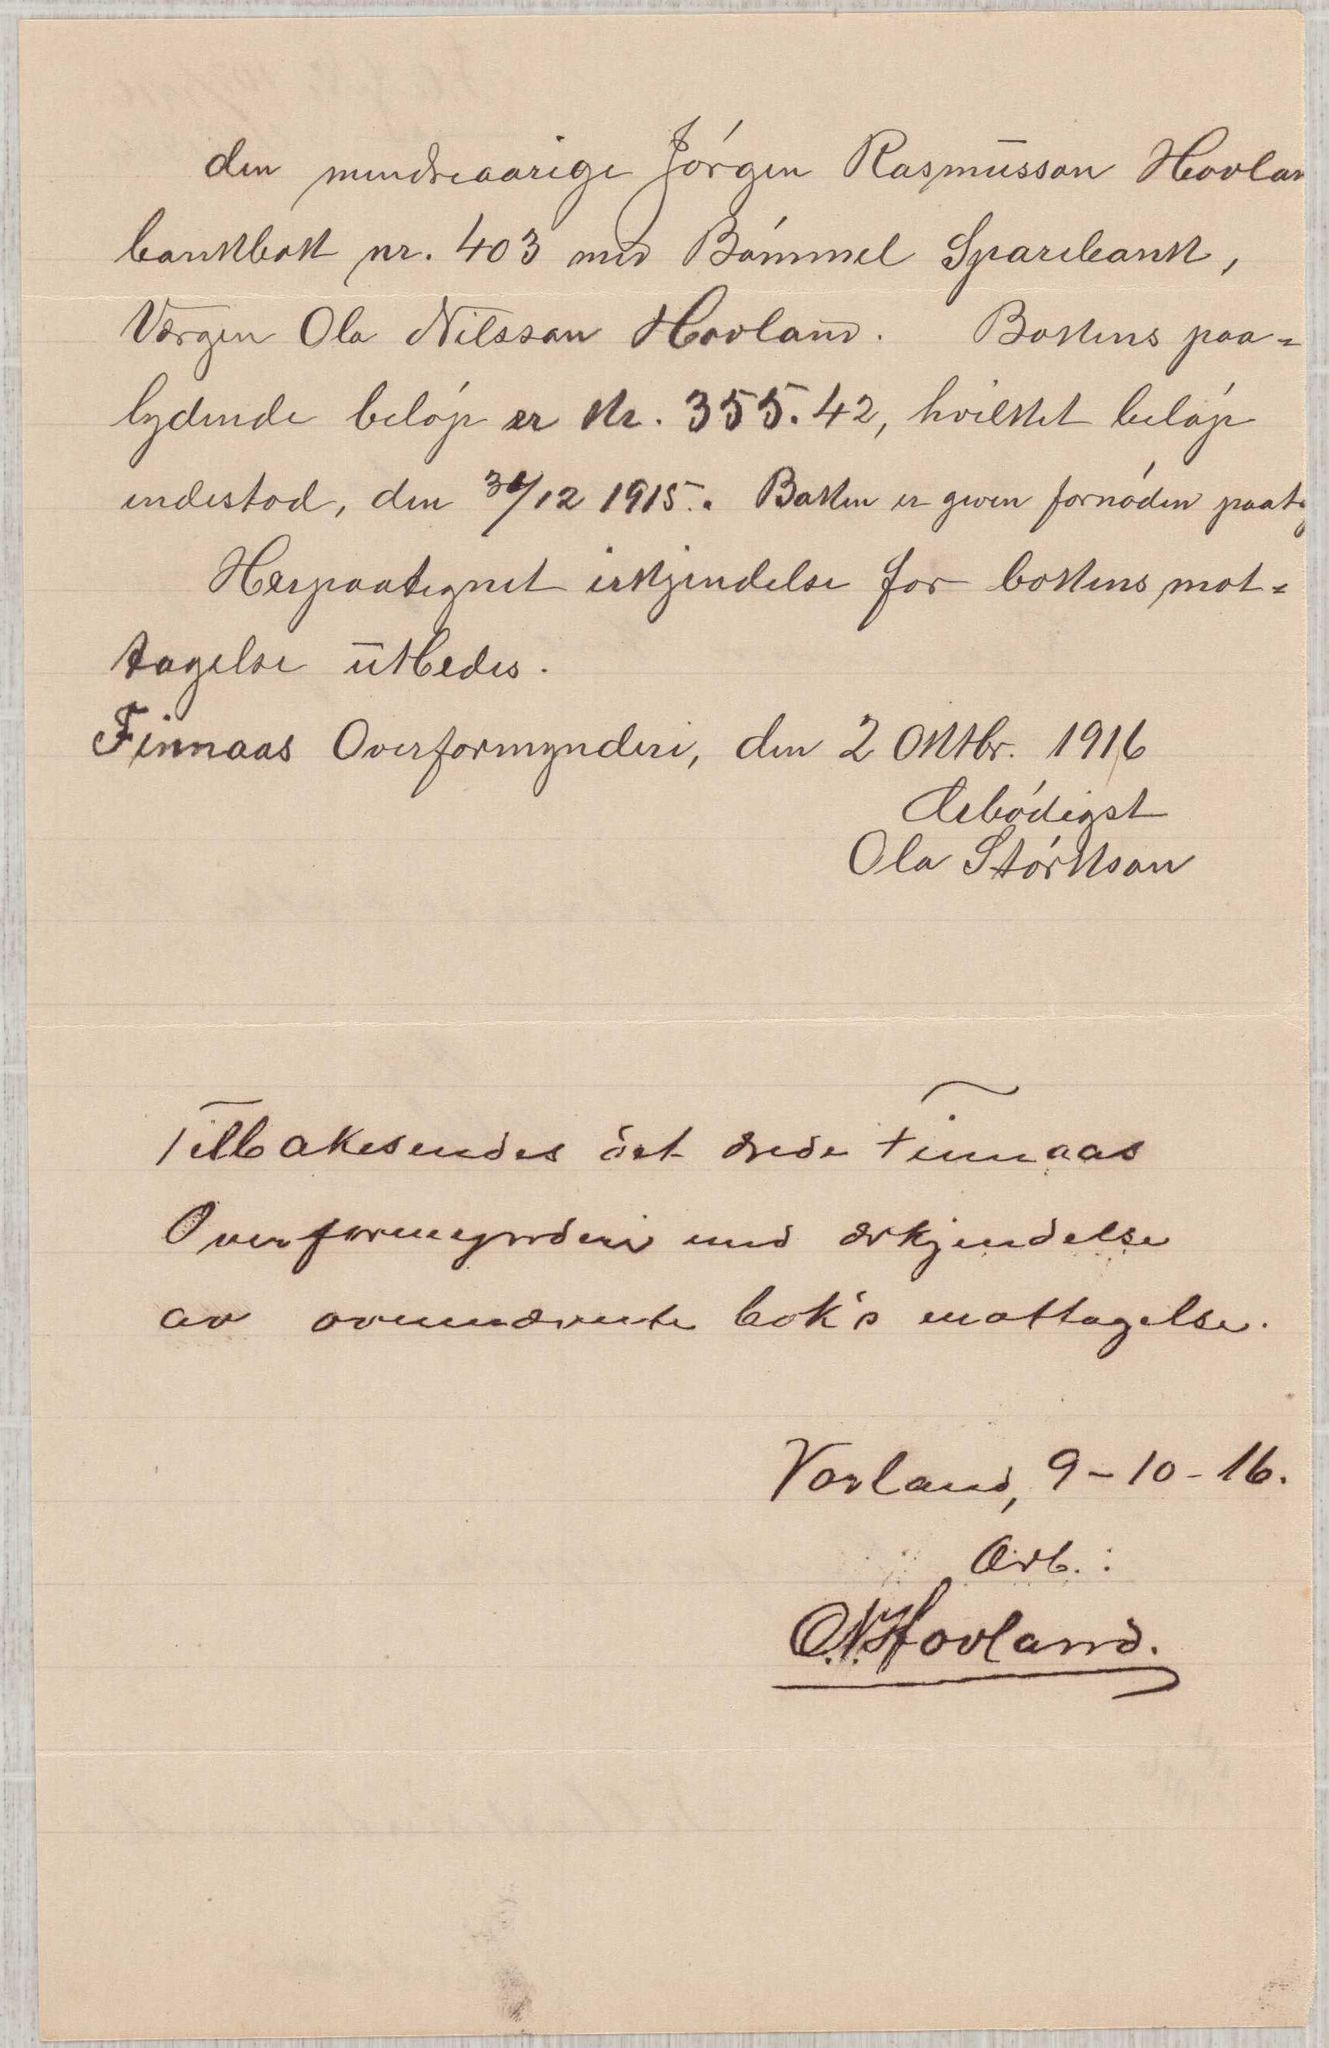 den mindreaarige Jórgen Rasmusson Hovlan
bankbok nr. 403 med Bómmel Sparebank,
Værgen Ola Nilsson Hovland. Bokens paa=
lydende belóp er kr. 355.42, hvilket belóp
indestod, den 31/12 1915. Boken er given fornóden paat
Herpaategnet erkjendelse for bokens mot=
tagelse utbedes.
Finnaas Overformynderi, den 2 Oktbr. 1916
Ærbódigst
Ola Stórkson
Tilbakesendes det ærede Finnaas
Overformynderi med erkjendelse
av ovennævnte bok's mottagelse.
Vorland, 9-10-16.
Ærb.:
O.N.Hovland.